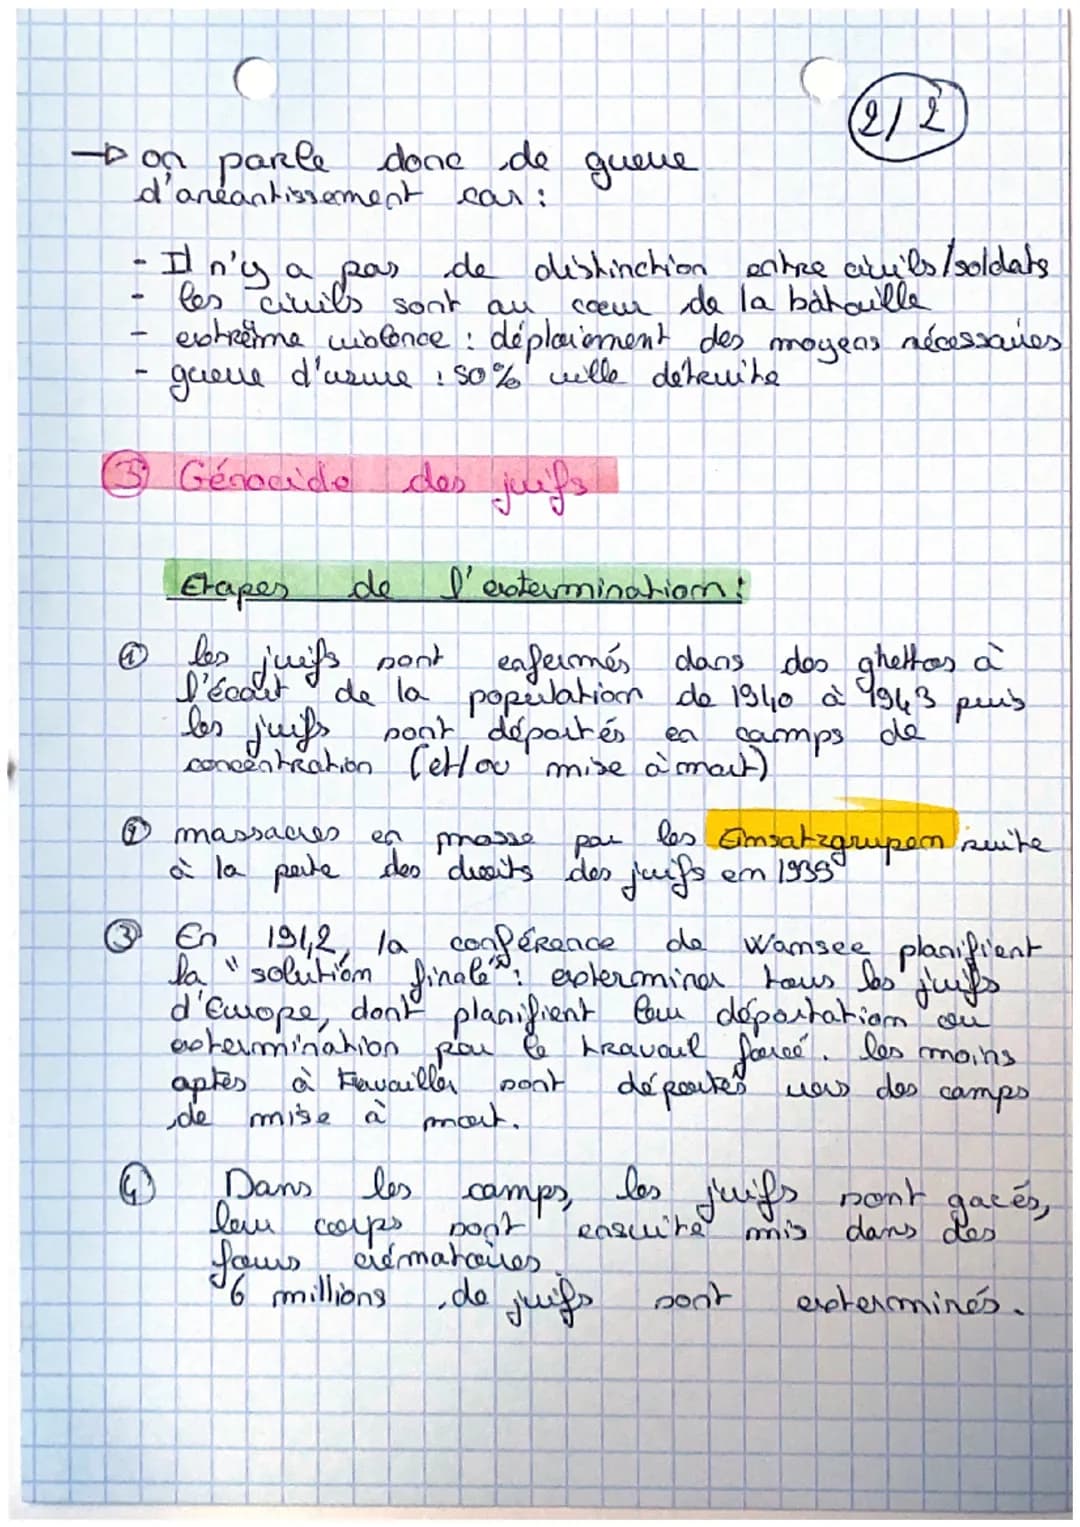 2/2
→ on parle donc de guerre
d'anéantissement car :
- Il n'y a pas de distinction entre civils/soldats
- les civils sont au coeur de la bataille
- extrême violence : déploiement des moyens nécessaires
- guerre d'usure : 90% ville détruite
③ Génocide des juifs
Etapes de l'extermination :
① les juifs sont enfermés dans des ghettos à
l'écart de la population de 1940 à 1943 puis
les juifs sont déportés en camps de
concentration (et/ou mise à mort)
② massacres en masse par les Einsatzgrupen suite
à la perte des droits des juifs en 1935
③ En 1942, la conférence de Wamsee planifient
la "solution finale" : exterminer tous les juifs
d'Europe, dont planifient leur déportation ou
extermination par le travail forcé. les moins
aptes à travailler sont déportés vers des camps
de mise à mort.
④ Dans les camps, les juifs sont gacés,
leur corps sont ensuite mis dans des
fours crématoires.
6 millions de juifs sont exterminés.